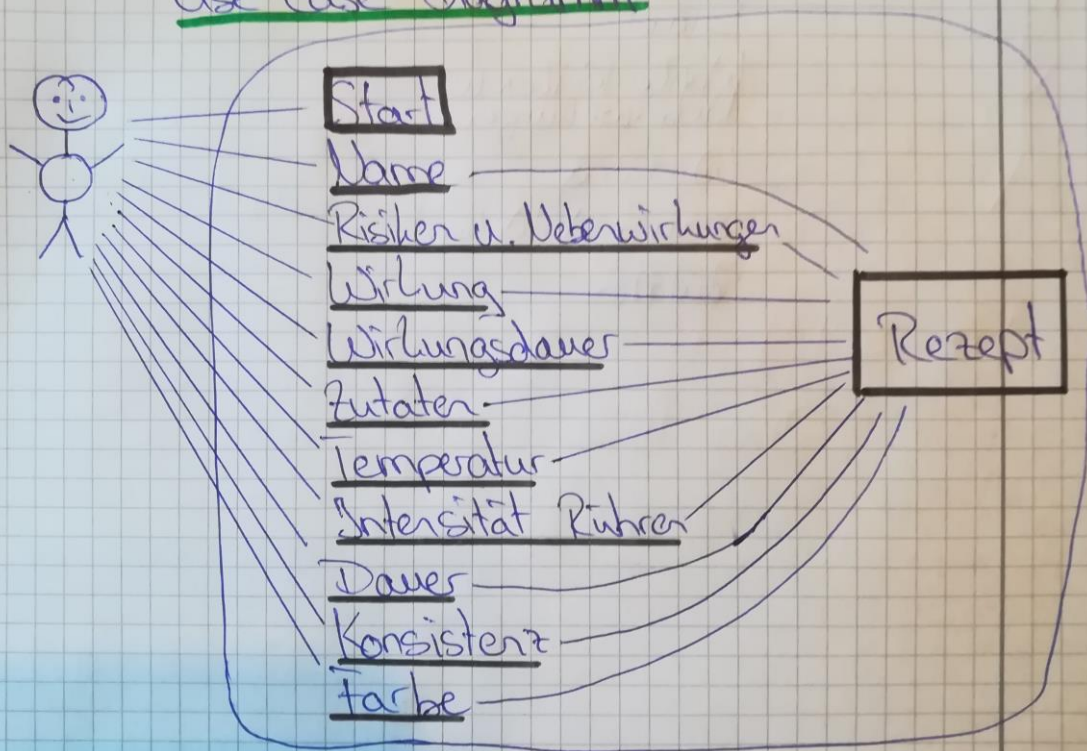 Use Case Diagramm
Start
Name
Risiken u. Nebenwirkungen
Wirkung
Wirkungsdauer
Zutaten
Temperatur
Intensität Rühren
Dauer
Konsistenz
Farbe
Rezept